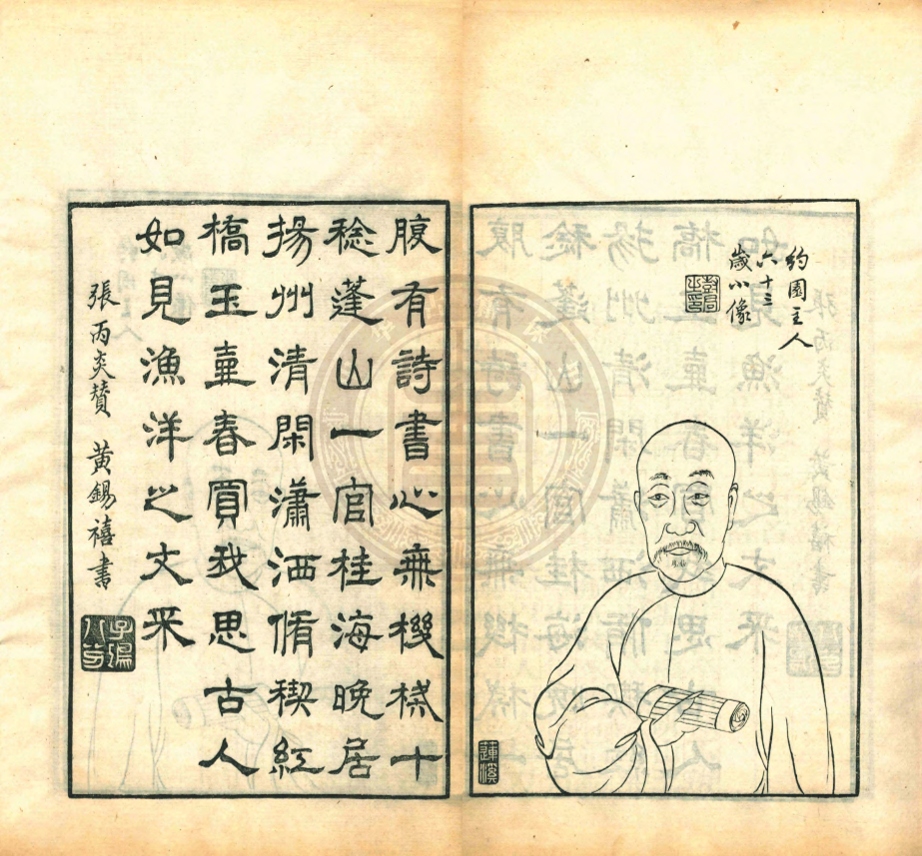 約園主人
六十三
歲小像
蓮溪
腹有詩書心無機械十
稔蓬山一官桂海晚居
揚州清閑瀟洒脩稧紅
橋玉壺春買我思古人
如見漁洋之文采
張丙炎贊 黃錫禧書
子鴻八分